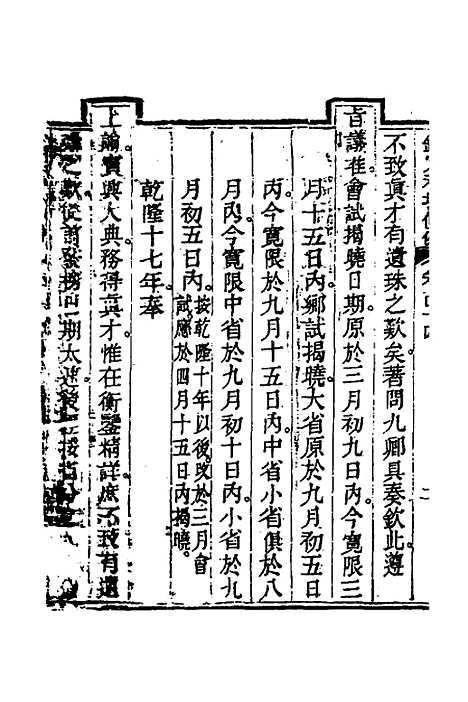 不致眞才有遺珠之歎矣著問九卿具奏欽此遵
旨議准會試揭曉日期原於三月初九日內今寬限三
月十五日內鄉試揭曉大省原於九月初五日
內今寬限於九月十五日內中省小省俱於八
月內今寬限中省於九月初十日內小省於九
月初五日內按乾隆十年以後改於三月會
試應於四月十五日內揭曉
乾隆十七年奉
上諭賓興大典務得眞才惟在衡鑒精詳庶不致有遺
珠之歎從前發榜日期太